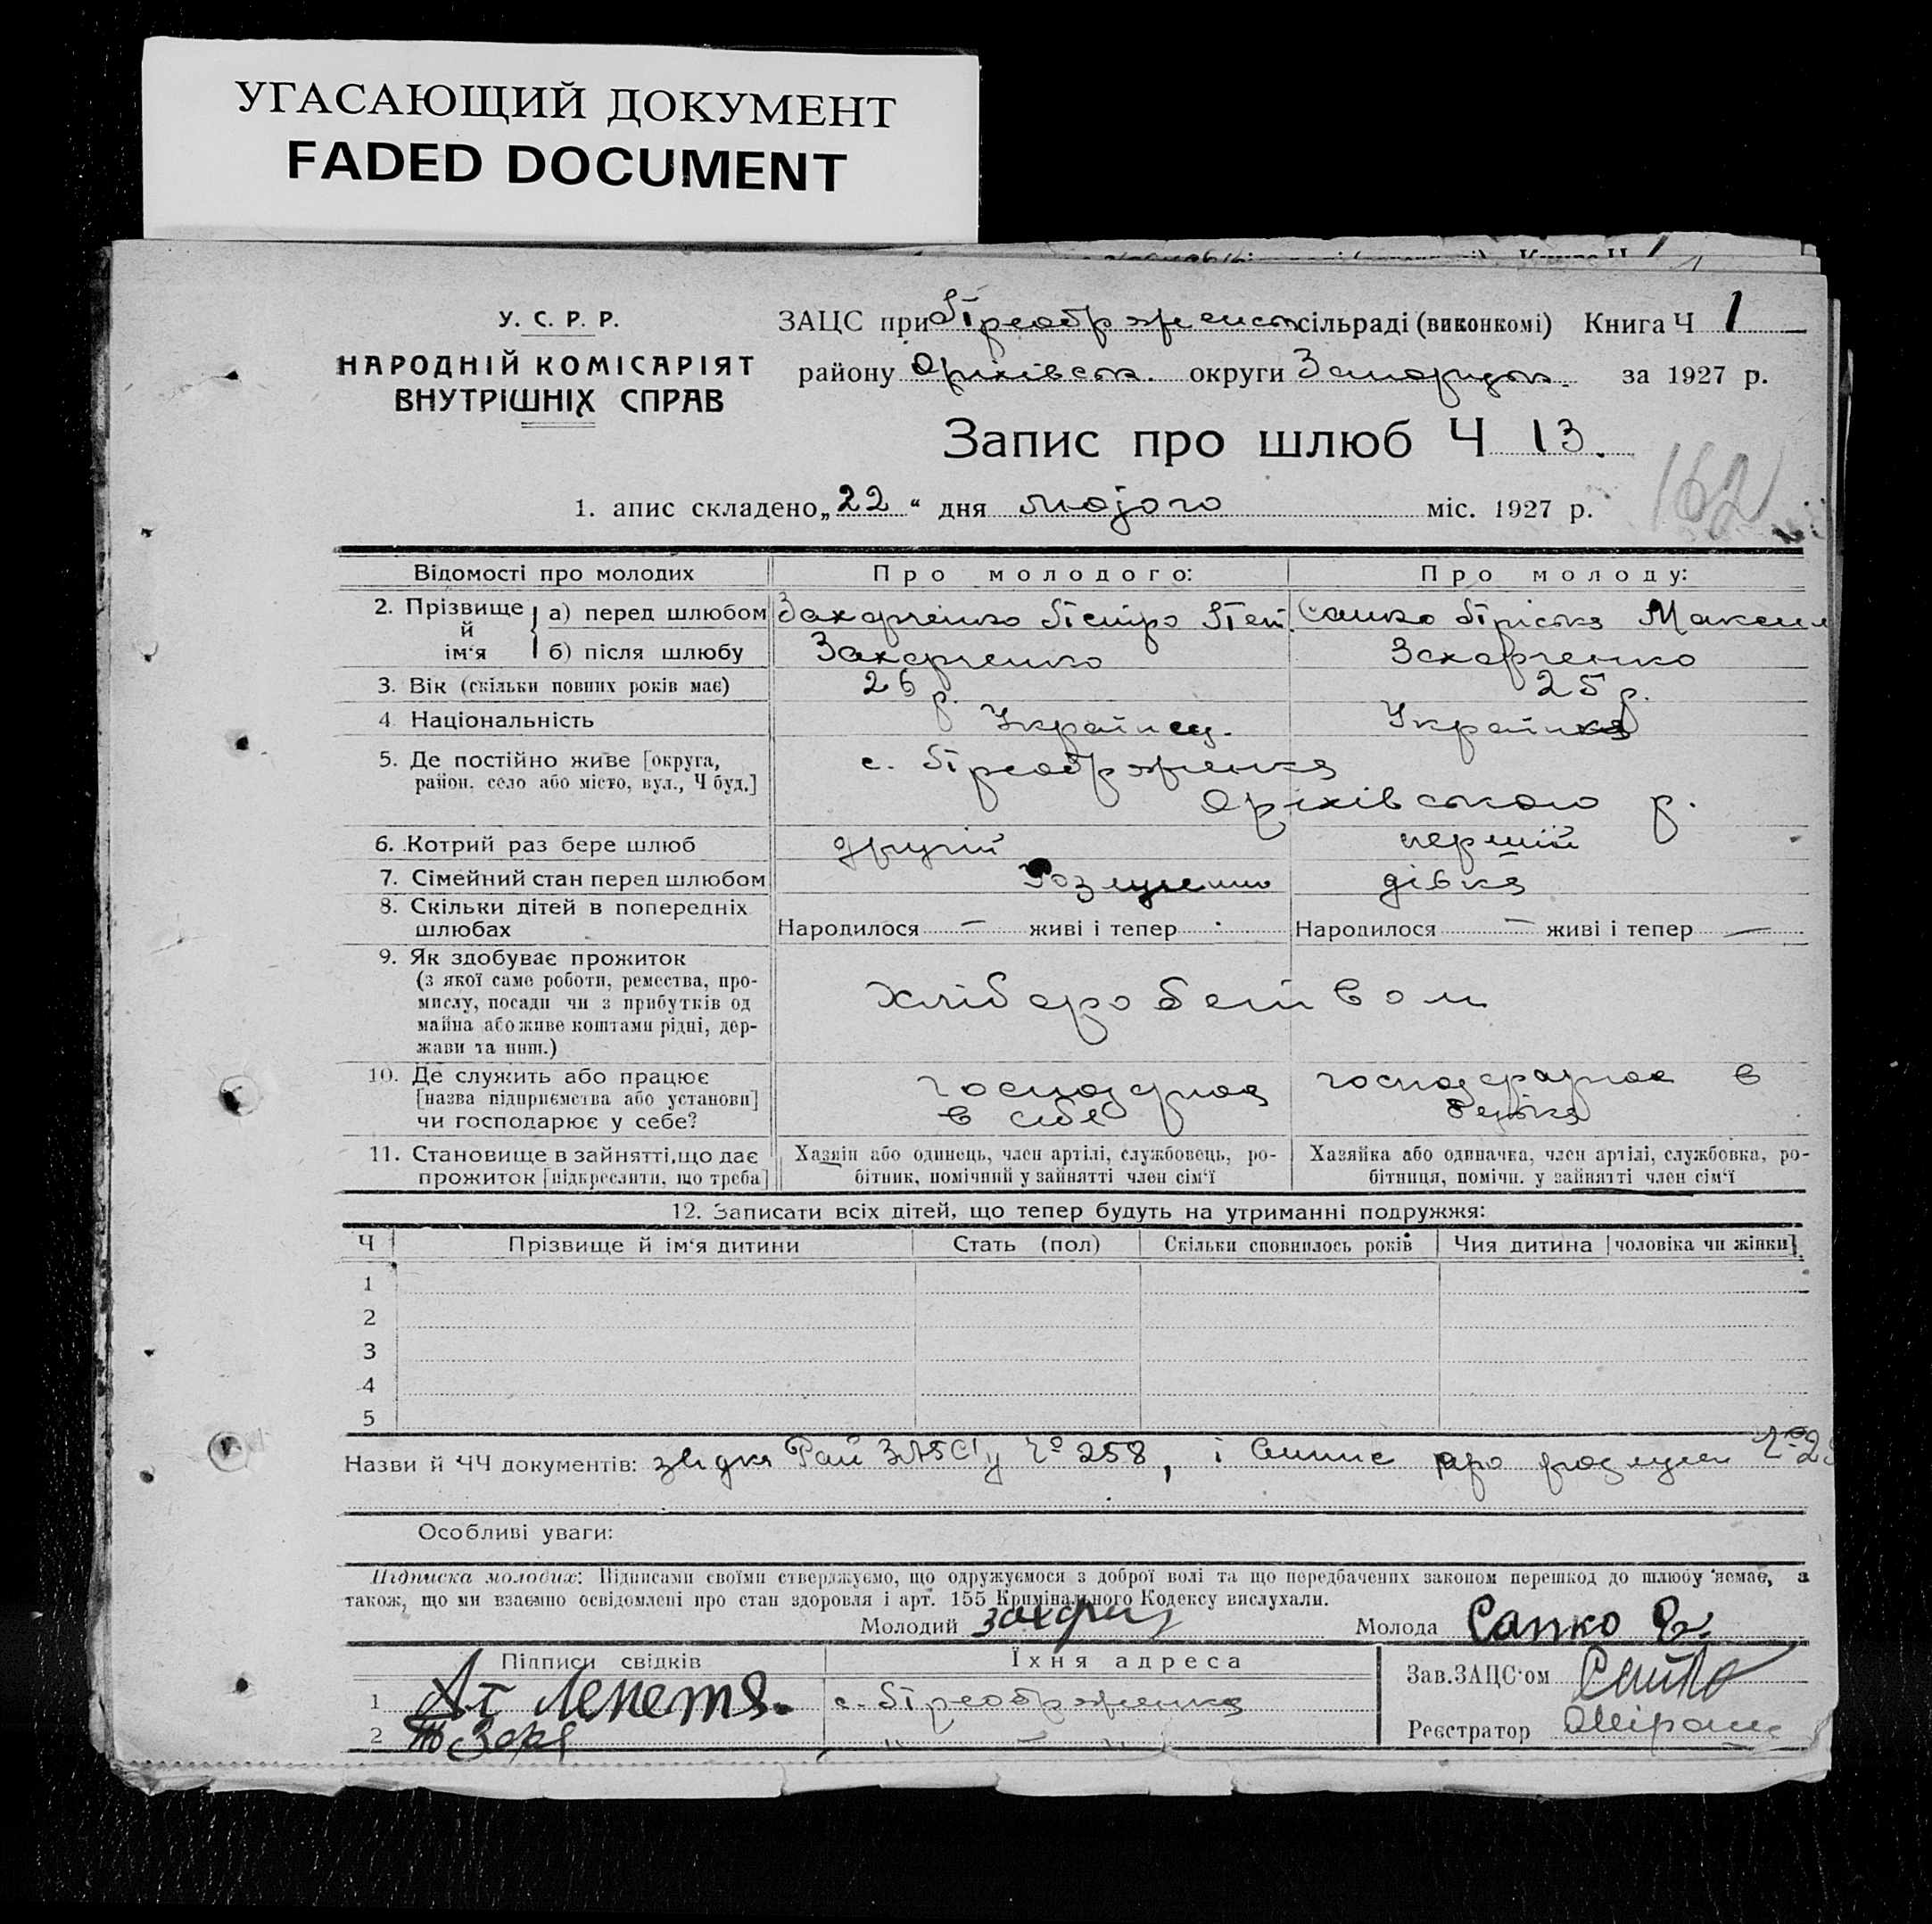 УГАСАЮЩИЙ ДОКУМЕНТ
FADED DOCUMENT
У. С. Р. Р.
НАРОДНІЙ КОМІСАРІЯТ
ВНУТРІШНІХ СПРАВ
ЗАЦС при Преображенськ сільраді (виконкомі) Книга Ч 1
району Оріхівськ. округи за 1927 р.
Запис про шлюб Ч 13.
162
1. апис складено „22“ дня лютого міс. 1927 р.
Відомості про молодих Про молодого: Про молоду:
2. Прізвище й ім‘я
а) перед шлюбом Захарченко Петро Пет. Сапко Пріська Максим
б) після шлюбу Захарченко Захарченко
3. Вік (скільки повних років має) 26 р. 25 р.
4 Національність Українец. Українка
5. Де постійно живе [округа,
район, село або місто, вул., Ч буд.]
с. Преображенка
Оріхівського р.
6. Котрий раз бере шлюб другій перший
7. Сімейний стан перед шлюбом дівка
8. Скільки дітей в попередніх
шлюбах Народилося — живі і тепер Народилося — живі і тепер —
9. Як здобуває прожиток
(з якої саме роботи, ремества, про-
мислу, посади чи з прибутків од
майна або живе коштами рідні, дер-
жави та инш.)
Хліборобством
10. Де служить або працює
[назва підприємства або установи]
чи господарює у себе?
в себе
11. Становище в зайнятті, що дає
прожиток [підкреслити, що треба]
Хазяїн або одинець, член артілі, службовець, ро-
бітник, помічний у зайнятті член сім‘ї
Хазяйка або одиначка, член артілі, службовка, ро-
бітниця, помічн. у зайнятті член сім‘ї
12. Записати всіх дітей, що тепер будуть на утриманні подружжя:
Ч Прізвище й ім‘я дитини Стать (пол) Скільки сповнилось років Чия дитина [чоловіка чи жінки].
1
2
3
4
5
Назви й ЧЧ документів: Рай ЗАГСʼу № 258, і про
Особливі уваги:
Підписка молодих: Підписами своїми стверджуємо, що одружуємося з доброї волі та що передбачених законом перешкод до шлюбу немає, а
також, що ми взаємно освідомлені про стан здоровля і арт. 155 Кримінального Кодексу вислухали.
Молодий Молода Сапко
Підписи свідків Їхня адреса
1 Лепетя. с. Преображенка
2 „ — „
Зав. ЗАЦС‘ом
Реєстратор